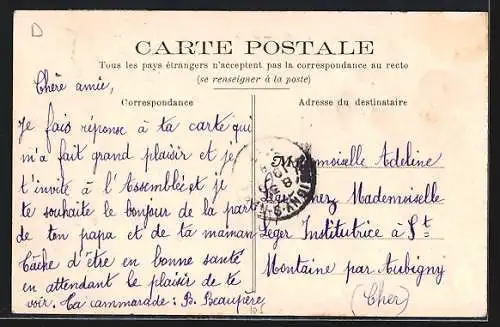 D
CARTE POSTALE
Tous les pays étrangers n'acceptent pas la correspondance au recto
(se renseigner à la poste)
Correspondance
Chère amie,
Je fais réponse à ta carte qui
m'a fait grand plaisir et je
t'invite à l'Assemblée et je
te souhaite le bonjour de la part
de ton papa et de ta maman
Tâche d'être en bonne santé
en attendant le plaisir de te
voir. Ta cammarade : B. Beaupère
Adresse du destinataire
Mademoiselle Adeline
chez Mademoiselle
Leger Institutrice à St
Montaine par Aubigny
(Cher)